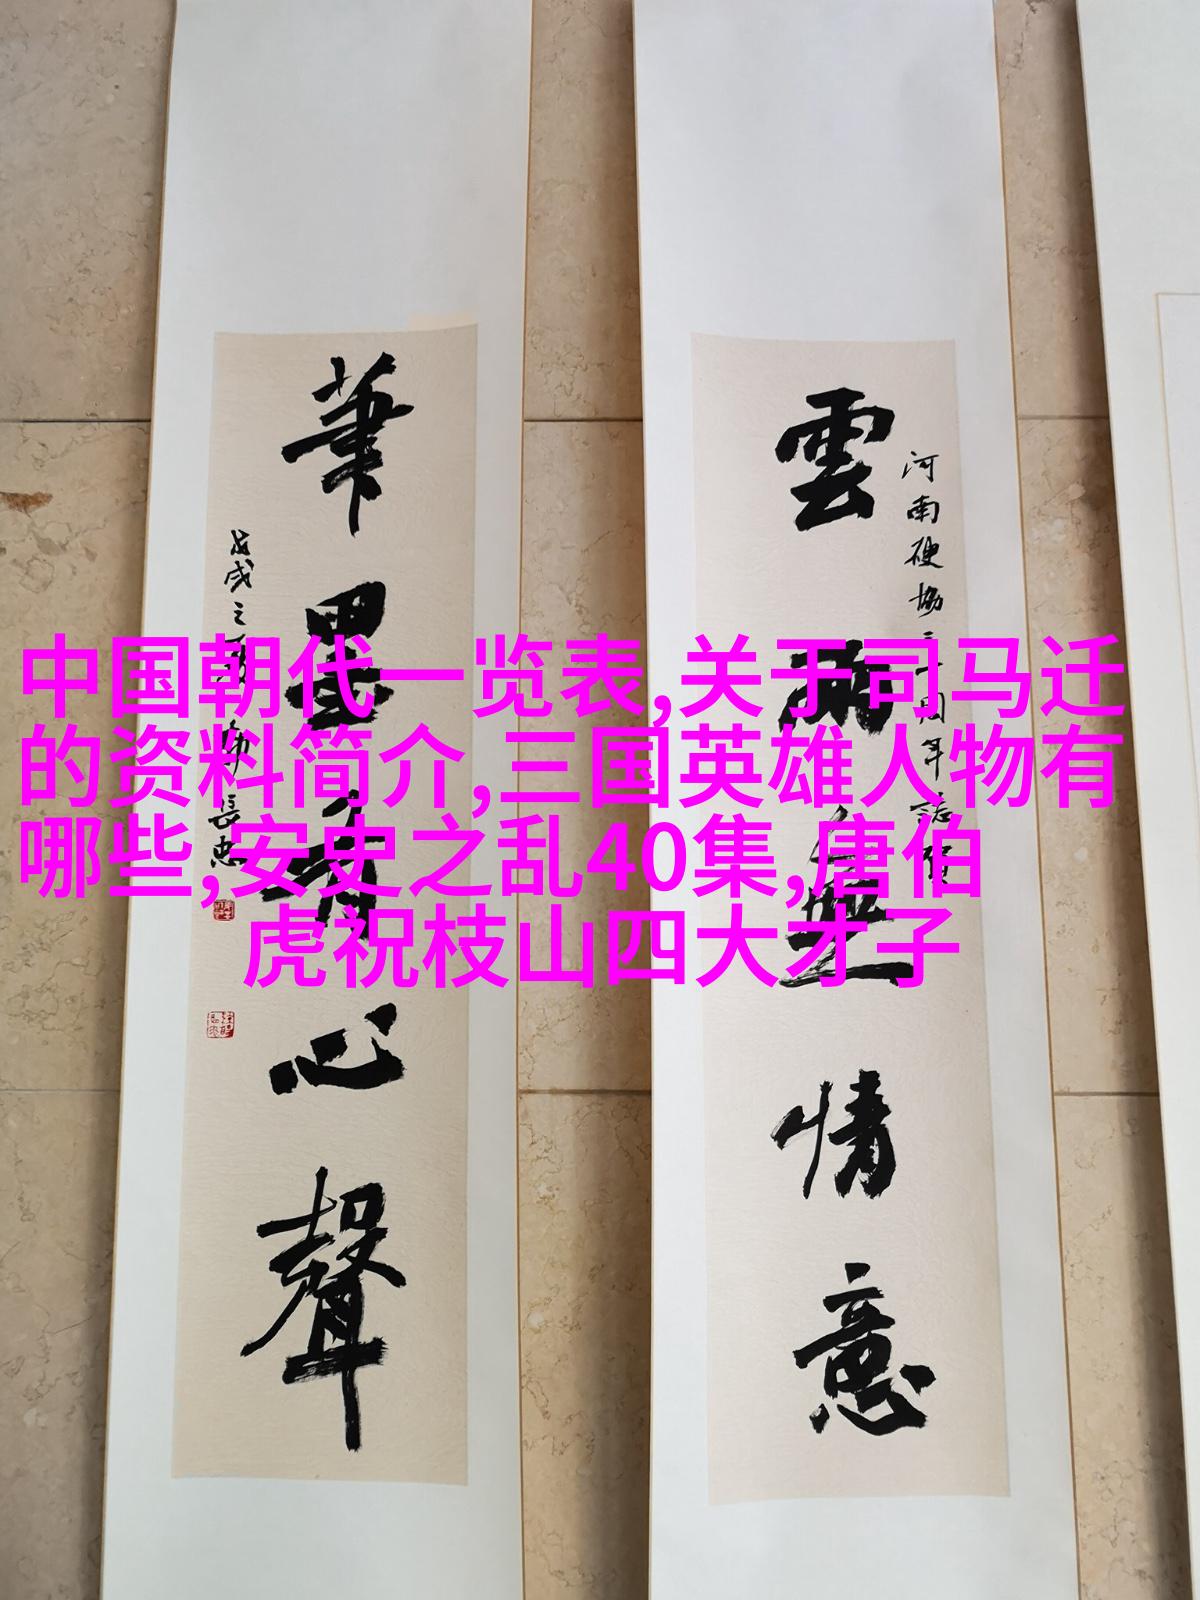 中国朝代一览表,关于司马迁
的资料简介,三国英雄人物有
哪些,安史之乱40集,唐伯
虎祝枝山四大才子
雲雨無情意
河南硬協二十周年誌賀
筆墨有心聲
戊戌之
長忠